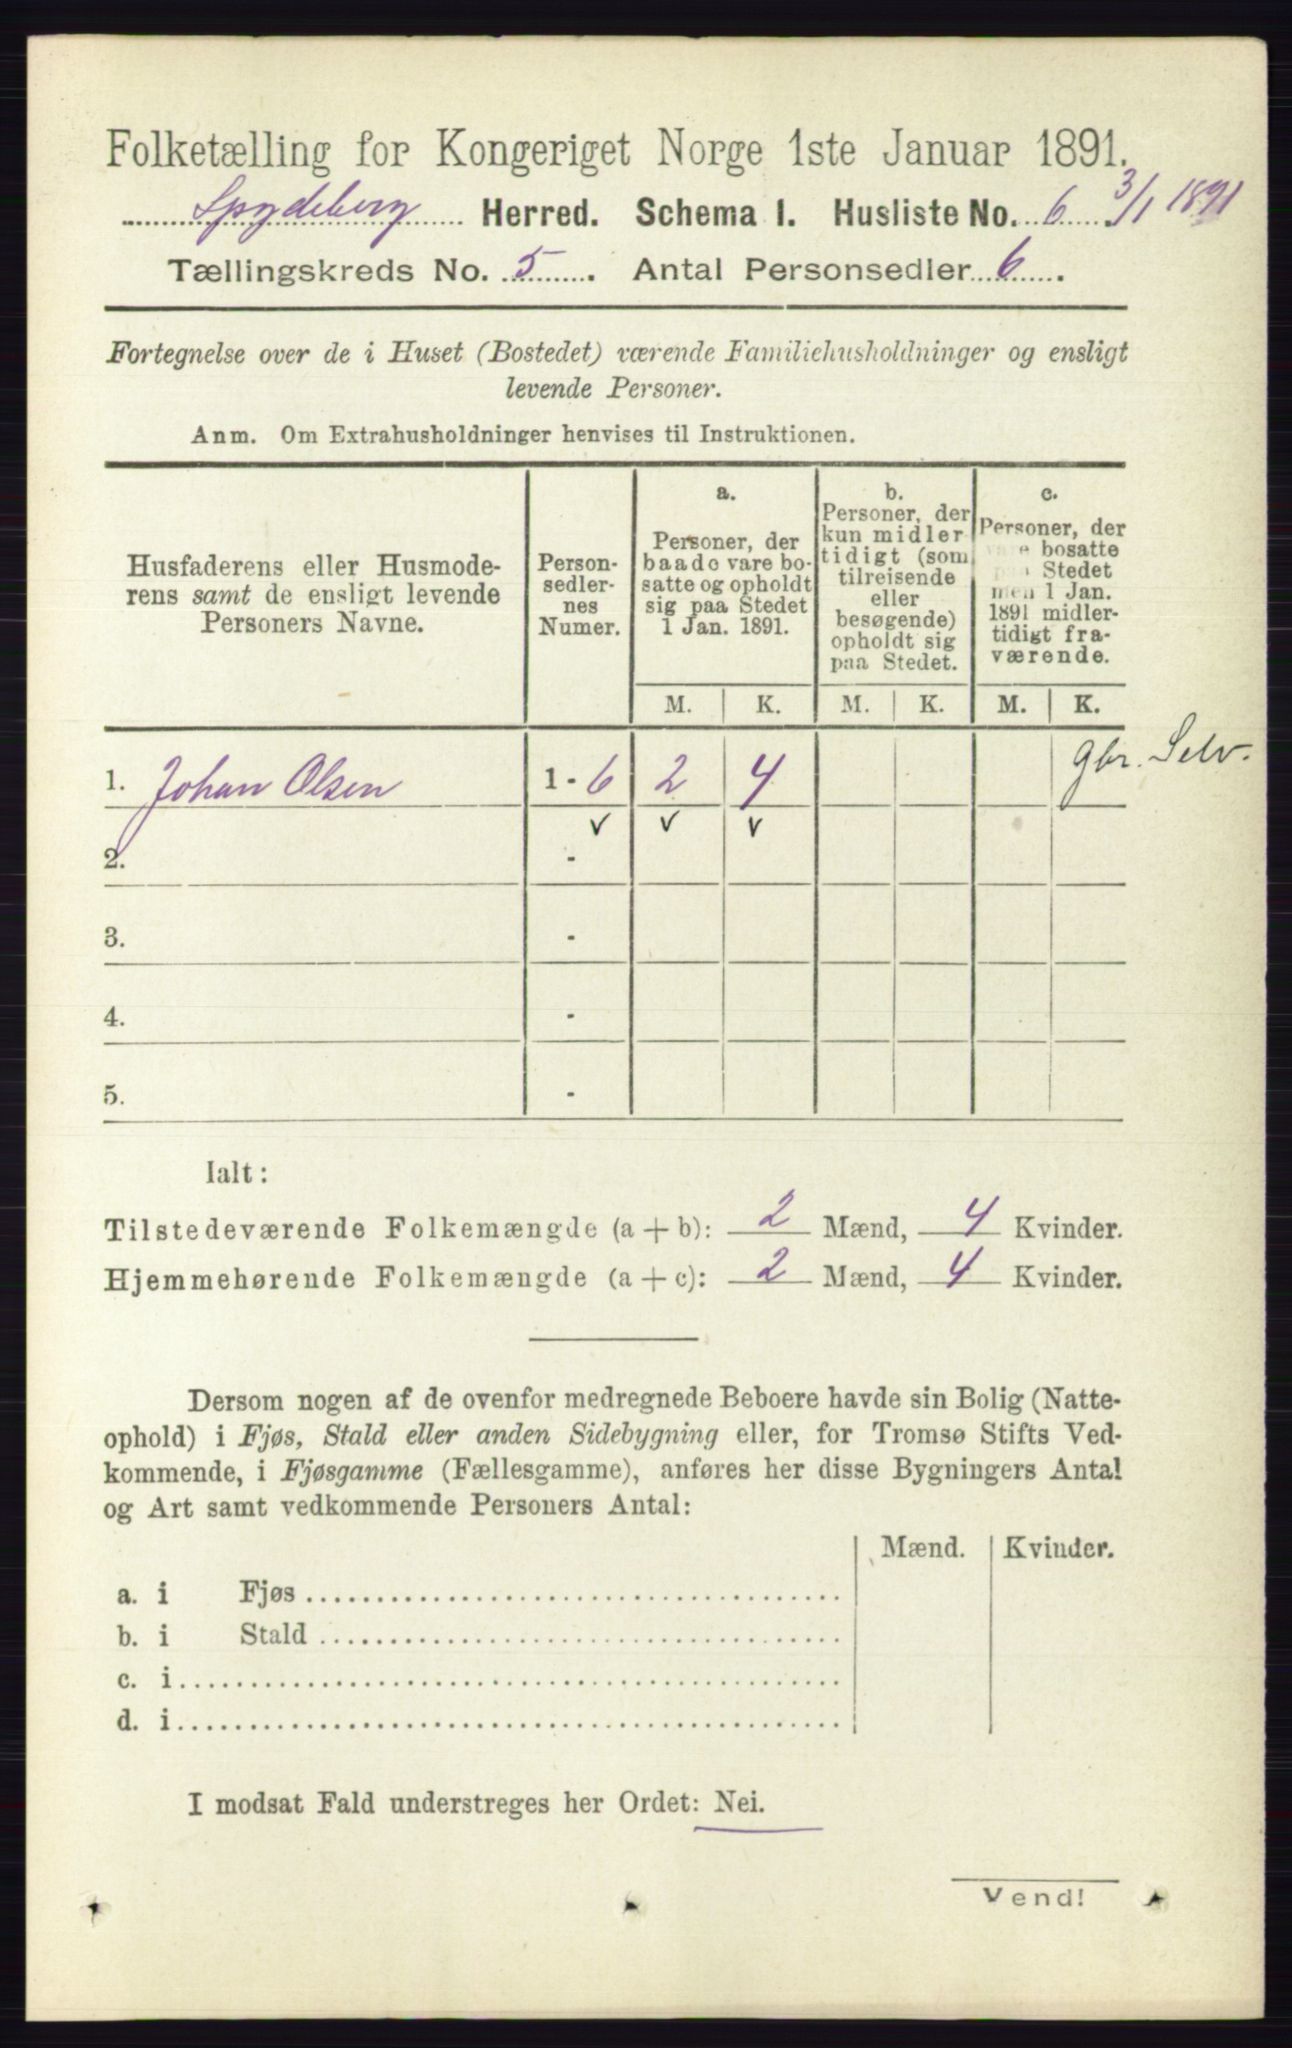 Folketælling for Kongeriget Norge 1ste Januar 1891.
Spydeberg Herred. Schema I. Husliste No. 6 3/1 1891
Tællingskreds No. 5. Antal Personsedler 6.
Fortegnelse over de i Huset (Bostedet) værende Familiehusholdninger og ensligt
levende Personer.
Anm. Om Extrahusholdninger henvises til Instruktionen.
Husfaderens eller Husmode-
rens samt de ensligt levende
Personers Navne.
Person-
sedler-
nes
Numer.
a.
Personer, der
baade vare bo-
satte og opholdt
sig paa Stedet
1 Jan. 1891.
b.
Personer, der
kun midler
tidigt (som
tilreisende
eller
besøgende)
opholdt sig
paa Stedet.
c.
Personer, der
vare bosatte
paa Stedet
men 1 Jan.
1891 midler-
tidigt fra-
værende.
M. K. M. K. M. K.
1. Johan Olsen 1 - 6 2 4 gbr. Selv.
v v v
2. -
3. -
4. -
5. -
Ialt:
Tilstedeværende Folkemængde (a + b): 2 Mænd, 4 Kvinder.
Hjemmehørende Folkemængde (a + c): 2 Mænd, 4 Kvinder.
Dersom nogen af de ovenfor medregnede Beboere havde sin Bolig (Natte-
ophold) i Fjøs, Stald eller anden Sidebygning eller, for Tromsø Stifts Ved-
kommende, i Fjøsgamme (Fællesgamme), anføres her disse Bygningers Antal
og Art samt vedkommende Personers Antal:
Mænd. Kvinder.
a. i Fjøs
b. i Stald
c. i
d. i
I modsat Fald understreges her Ordet: Nei.
Vend!